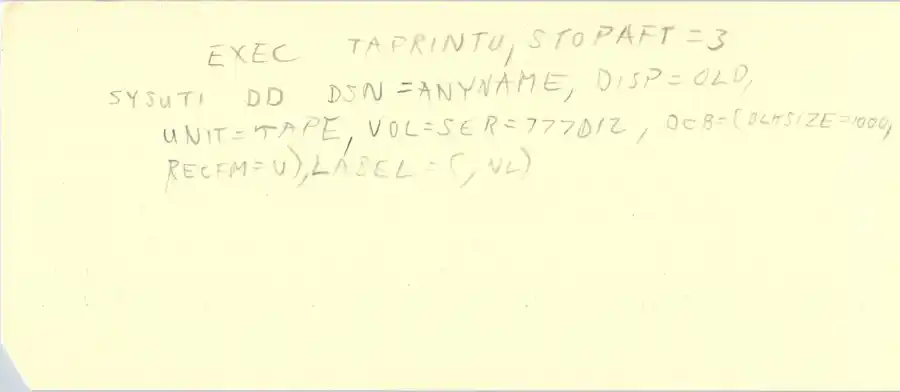 EXEC TAPRINTU, STOPAFT=3
SYSUT1 DD DSN=ANYNAME, DISP=OLD,
UNIT=TAPE, VOL=SER=777D12, DCB=(BLKSIZE=1000,
RECFM=U), LABEL=(,NL)